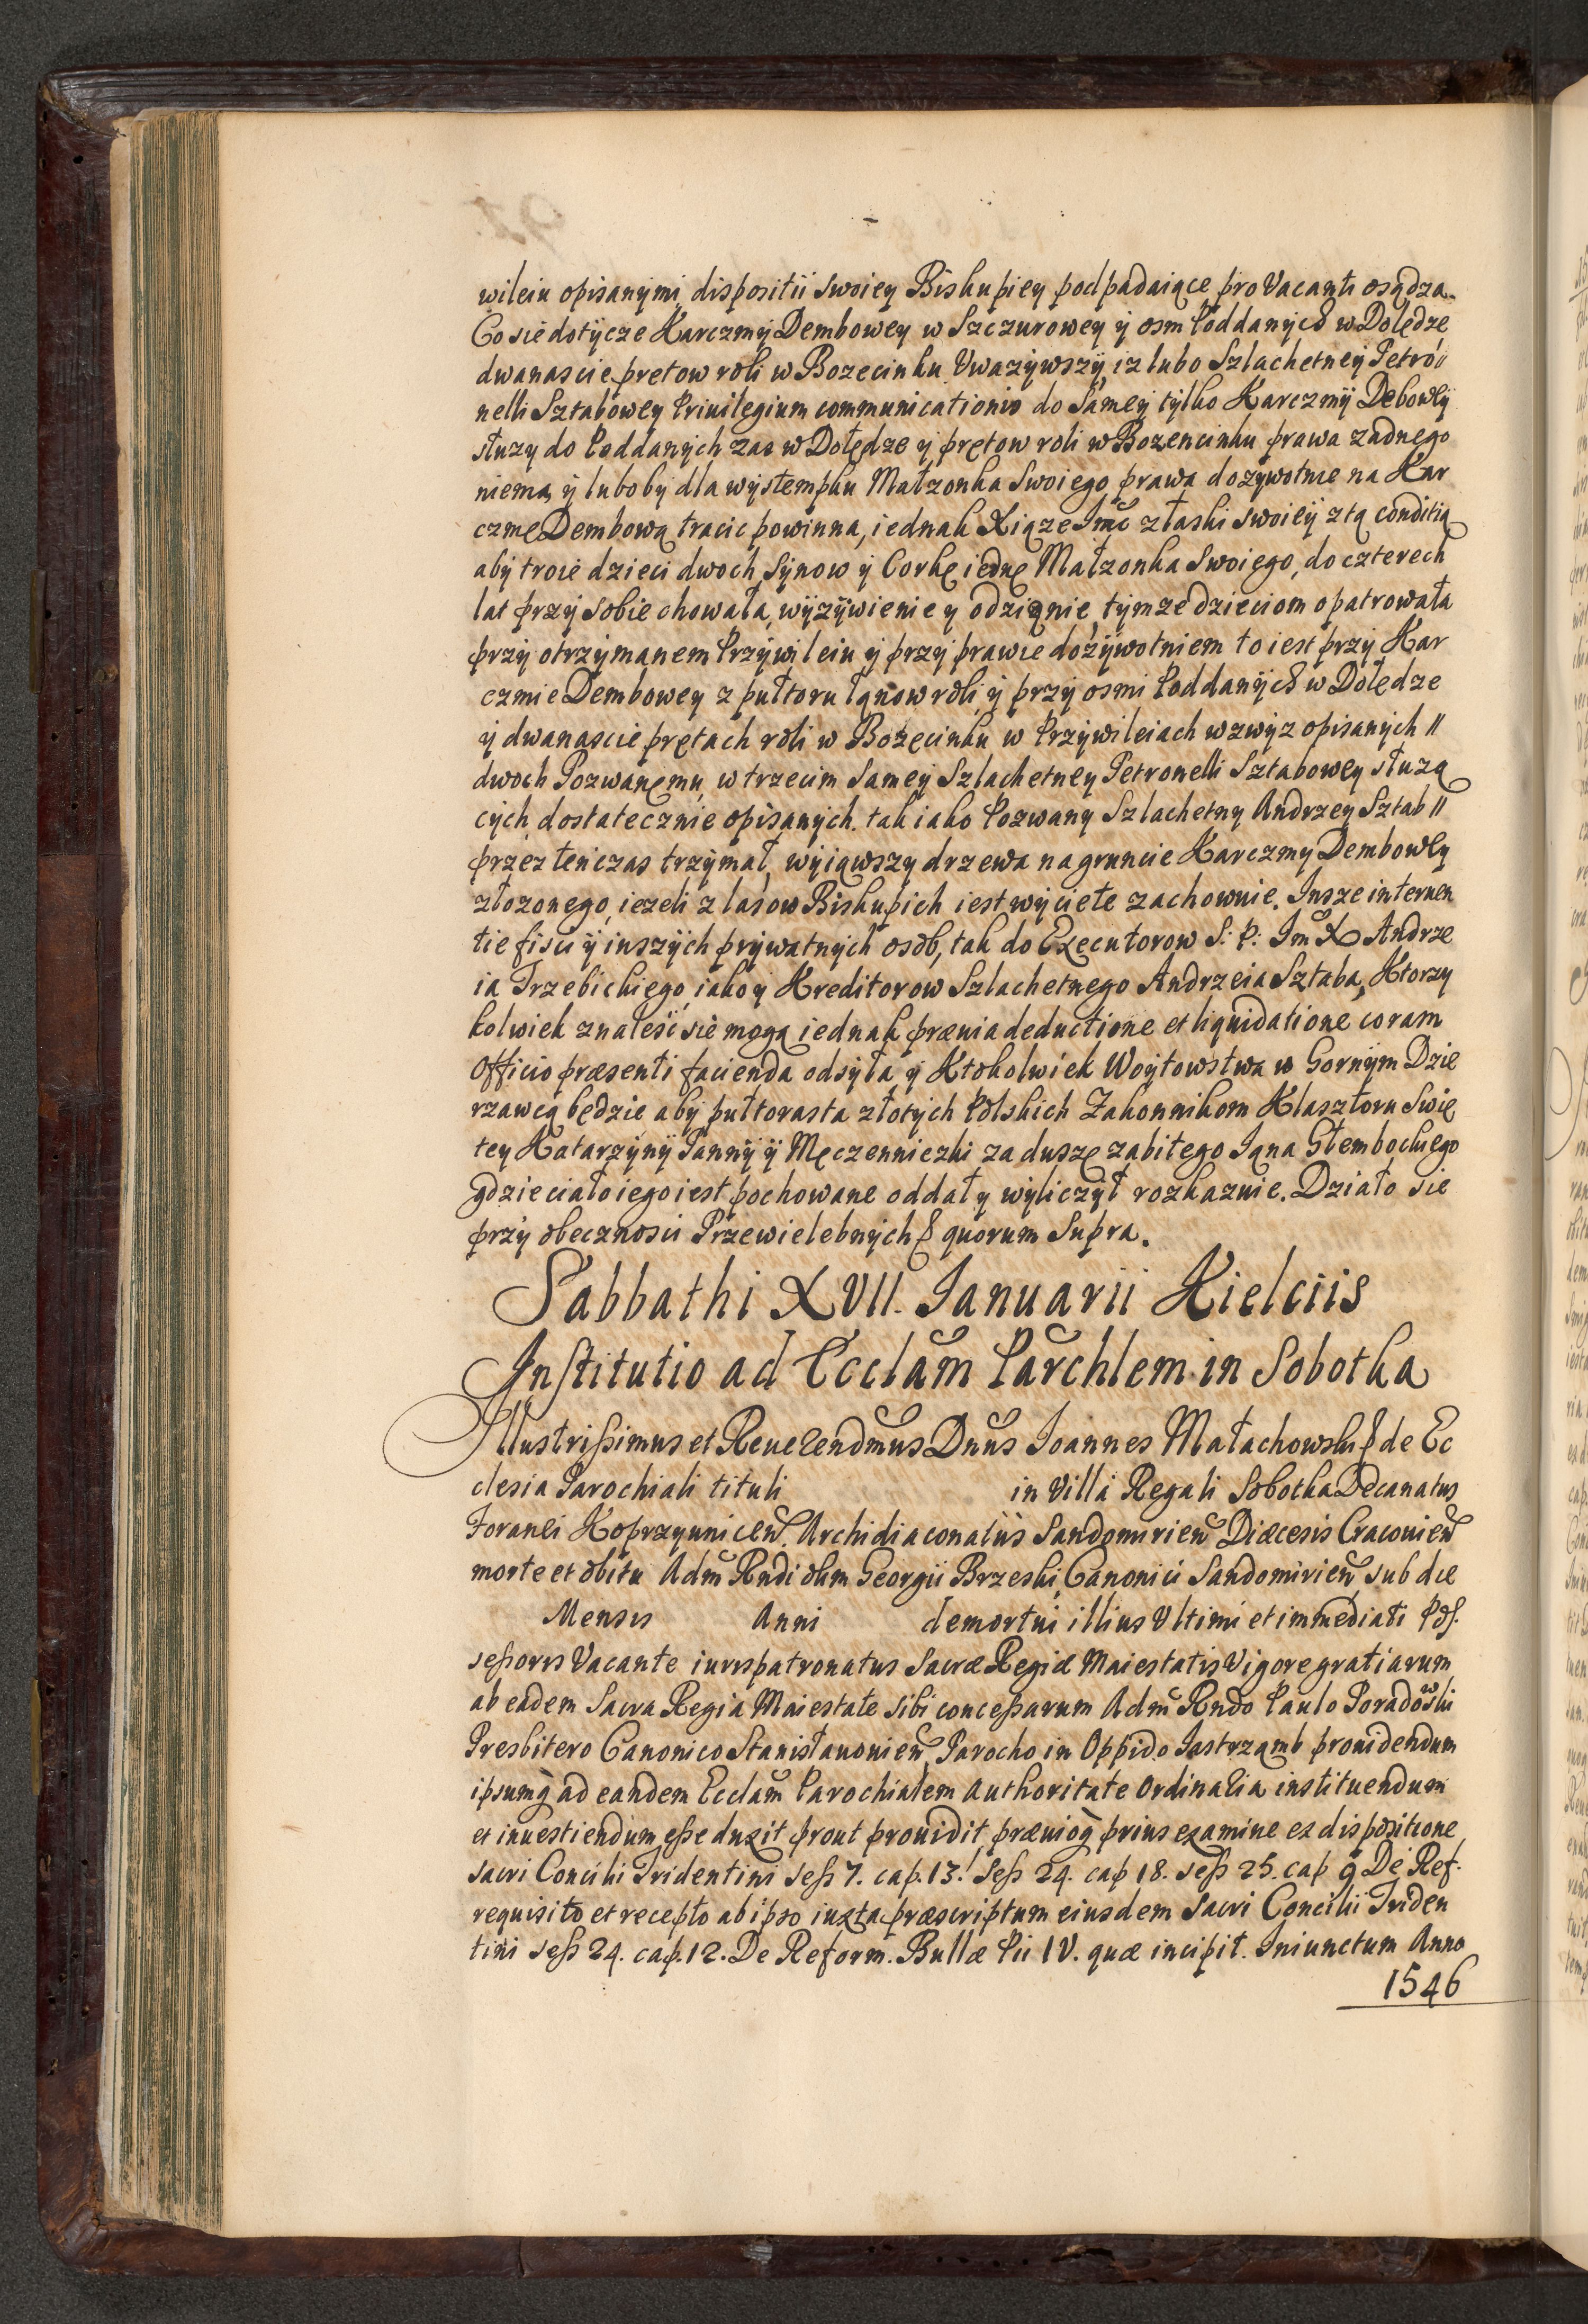 wileiu opisanymi, dispositii swoiey Biskupiey podpadaiące pro Vacanti osądza.
Co sie dotycze Karczmy Dembowey w Szczurowey y osm Poddanych w Dolędze
dwanascie pretow roli w Bozecinku Uwazywszy, iz lubo Szlachetney Petro
nelli Sztabowey Priuilegium communicationis do Samey tylko Karczmy Debowey
słuzy do Poddanych zas w Dołędze y prętow roli w Bozencinku prawa zadnego
niema, y luboby dla wystempku Małzonka Swoiego prawa dozywotnie na Kar
czme Dembową tracic powinna, iednak Xiąze Imc z łaski swoiey z tą conditią
aby troie dzieci dwoch Synow y Corkę iednę Małzonka Swoiego, do czterech
lat przy sobie chowała, wyzywienie y odzianie tymze dzieciom opatrowała
przy otrzymanem Przywileiu y przy prawie dozywotniem to iest przy Kar
czmie Dembowey z pułtoru łanow roli, y przy osmi Poddanych w Dolędze
y dwanascie prętach roli w Bozęcinku w Przywileiach wzwyz opisanych //
dwoch Pozwanemu, w trzecim Samey Szlachetney Petronelli Sztabowey słuzą
cych, dostatecznie opisanych. tak iako Pozwany Szlachetny Andrzey Sztab //
przez tenczas trzymał, wyiąwszy drzewa na gruncie Karczmy Dembowey
złozonego, iezeli z lasow Biskupich iest wyciete zachownie. Insze interuen
tie fisci y inszych prywatnych osob, tak do Executorow S: P: Im X Andrze
ia Trzebickiego, iako y Kreditorow Szlachetnego Andrzeia Sztaba, Ktorzy
kolwiek znalesc się mogą iednak præuia deductione et liquidatione coram
Officio præsenti facienda odsyła y Ktokolwiek Woytowstwa w Gornym Dzie
rzawcą będzie, aby pułtorasta złotych Polskich Zakonnikom Klasztoru Swię
tey Katarzyny Panny y Męczenniczki za duszę zabitego Iana Głembockiego
gdzie ciało iego iest pochowane oddał y wyliczył rozkazuie. Działo sie
przy obecznosci Przewielebnych & quorum Supra.
Sabbathi XVII. Ianuarii Kielciis
Institutio ad Ecclam Parchlem in Sobotka
Illustrissimus et Reuerendmus Dnus Ioannes Małachowski & de Ec
clesia Parochiali tituli in Villa Regali Sobotka Decanatus
Foranei Koprzyunicen. Archidiaconatus Sandomirien Diæcesis Cracouien
morte et obitu Adm Rndi olim Georgii Brzeski, Canonici Sandomirien, sub die
Mensis Anni demortui illius Ultimi et immediati Pos
sessoris Vacante iurispatronatus Sacræ Regiæ Maiestatis Vigore gratiarum
ab eadem Sacra Regia Maiestate sibi concessarum Adm Rndo Paulo Poradowski
Presbitero Canonico Stanisłauonien, Parocho in Oppido Jastrzamb prouidendum
ipsumq ad eandem Ecclam Parochialem Authoritate Ordinaria instituendum
et inuestiendum esse duxit prout prouidit, præuioq prius examine ex dispositione
sacri Concilii Tridentini sess 7. cap. 13. Sess 24. cap 18. sess 25. cap 9 De Ref.
requisito et recepto ab ipso iuxta præscriptum eiusdem Sacri Concilii Triden
tini sess 24. cap. 12. De Reform. Bullæ Pii IV. quæ incipit. Iniunctum Anno
1546